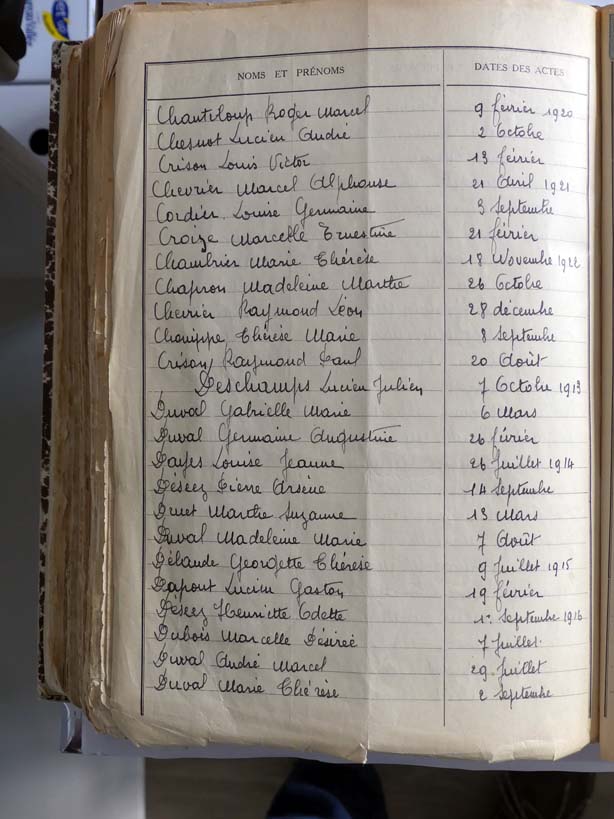 NOMS ET PRÉNOMS DATES DES ACTES
Chanteloup Roger Marcel 9 février 1920
Chesnot Lucien André 2 Octobre
Crison Louis Victor 13 février
Chevrier Marcel Alphonse 21 Avril 1921
Cordier Louise Germaine 3 Septembre
Croize Marcelle Ernestine 21 février
Chambrier Marie Thérèse 18 Novembre 1922
Chapron Madeleine Marthe 26 Octobre
Chevrier Raymond Léon 28 décembre
Chouippe Thérèse Marie 8 Septembre
Crison Raymond Paul 20 Août
Deschamps Lucien Julien 7 Octobre 1913
Duval Gabrielle Marie 6 Mars
Duval Germaine Augustine 26 février
Dayes Louise Jeanne 26 Juillet 1914
Déseez Pierre Arsène 14 Septembre
Duet Marthe Suzanne 13 Mars
Duval Madeleine Marie 7 Août
Délande Georgette Thérèse 9 Juillet 1915
Dapout Lucien Gaston 19 février
Déseez Henriette Odette 1er Septembre 1916
Dubois Marcelle Désirée 7 Juillet
Duval André Marcel 29 Juillet
Duval Marie Thérèse 2 Septembre